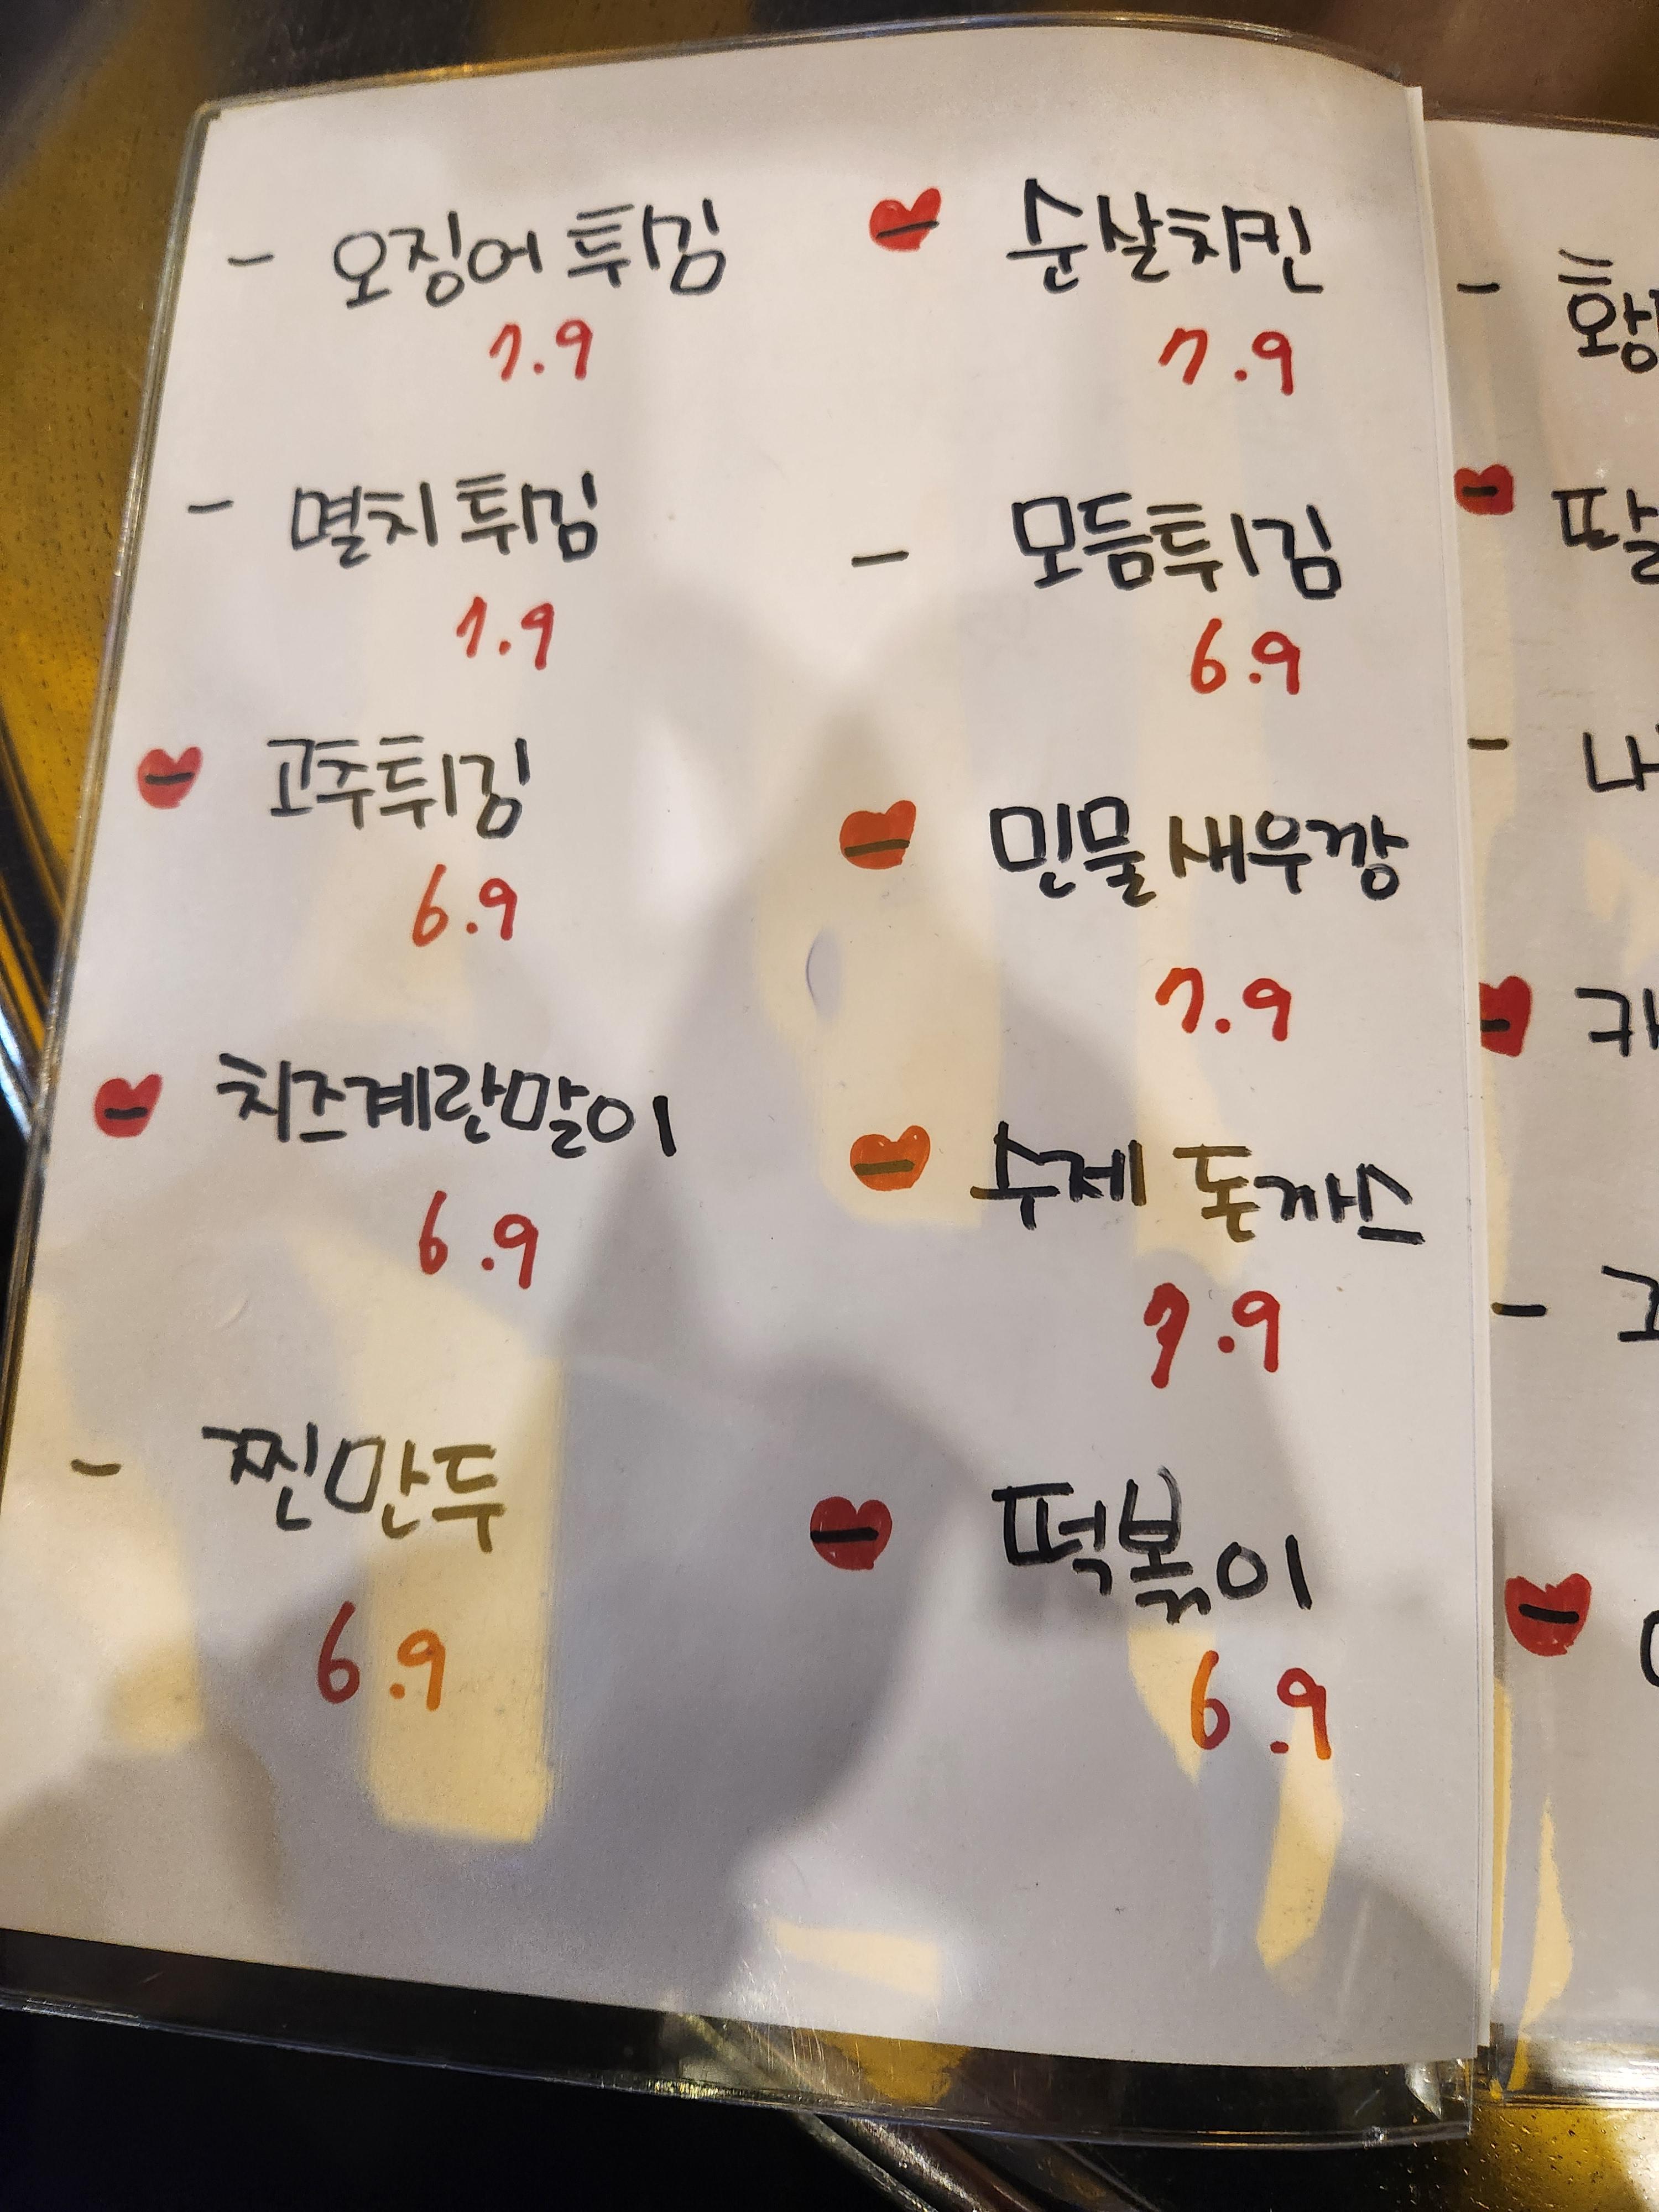 - 오징어 튀김
7.9
- 멸치 튀김
7.9
- 고추튀김
6.9
- 치즈계란말이
6.9
- 찐만두
6.9
- 순살치킨
7.9
- 모듬튀김
6.9
- 민물새우깡
7.9
- 수제 돈까스
7.9
- 떡볶이
6.9